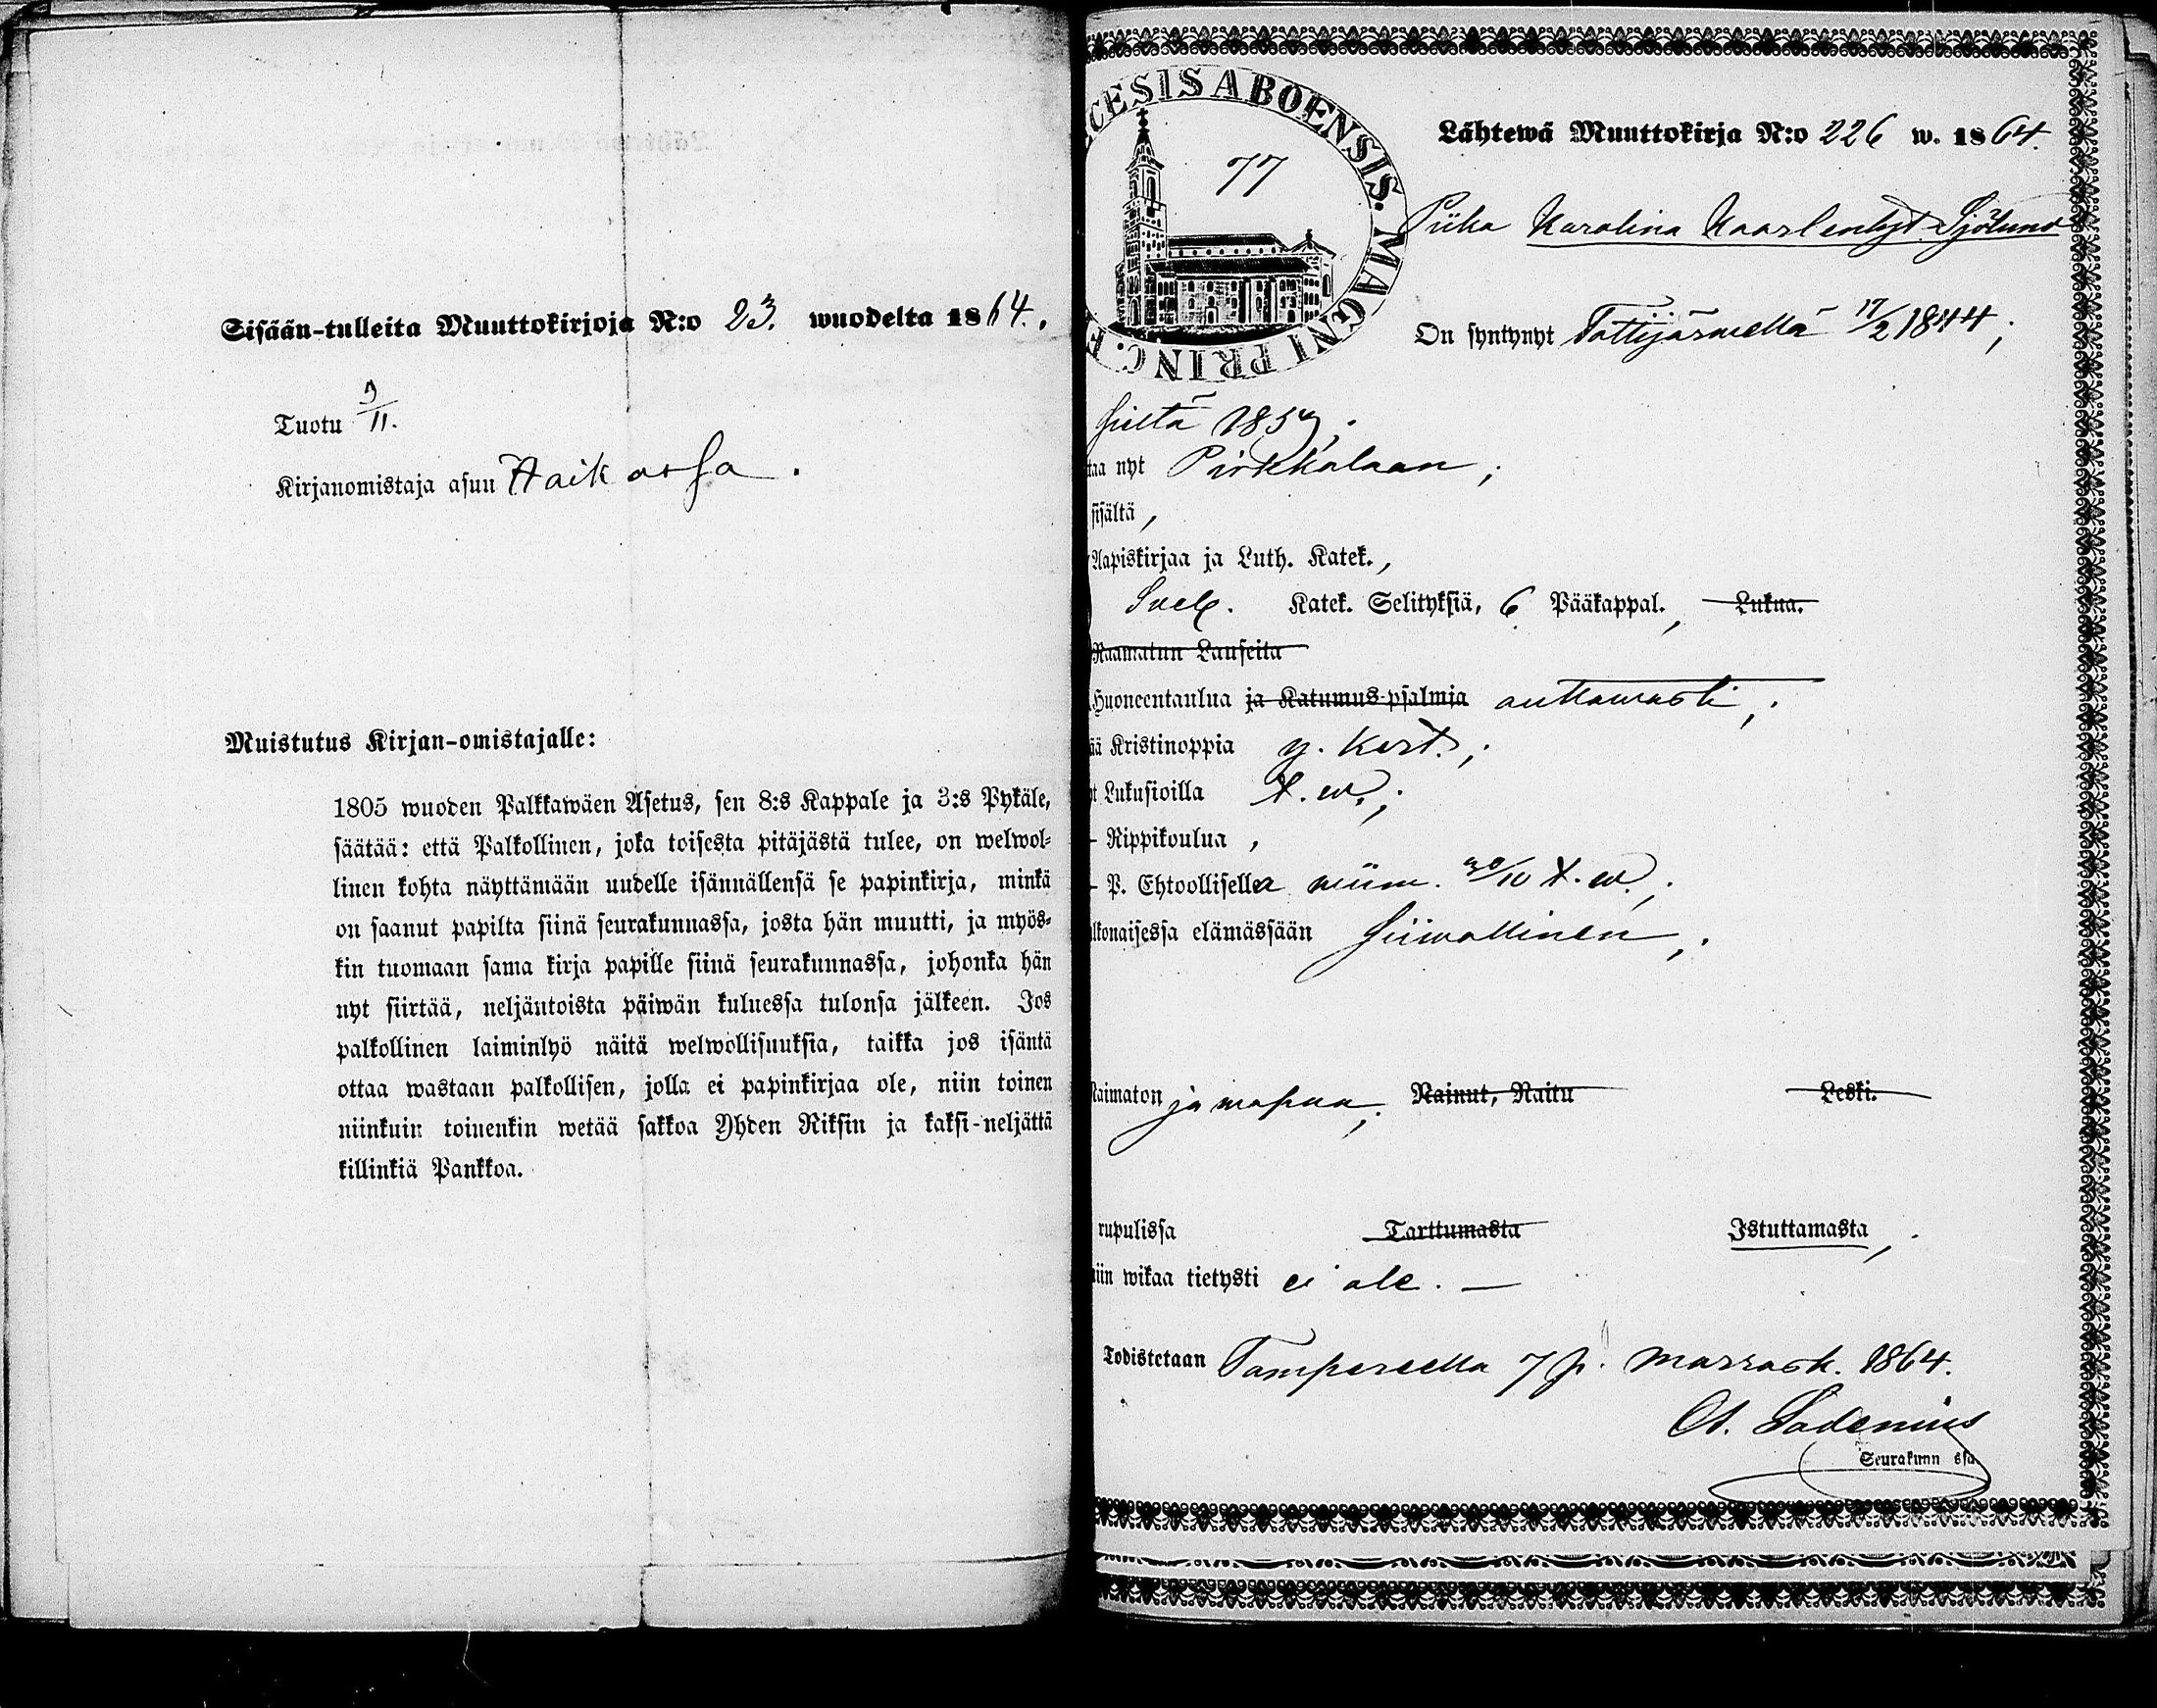 Sisään-tulleita Muuttokirjoja N:o 23. wuodelta 1864.
Tuotu 9/11.
Kirjanomistaja asuu Haikassa.
Muistutus Kirjan-omistajalle:
1805 wuoden Palkkawäen Asetus, sen 8:s Kappale ja 3:s Pykäle,
säätää: että Palkollinen, joka toisesta pitäjästä tulee, on welwol-
linen kohta näyttämään uudelle isännällensä se papinkirja, minkä
on saanut papilta siinä seurakunnassa, josta hän muutti, ja myös-
kin tuomaan sama kirja papille siinä seurakunnassa, johonka hän
nyt siirtää, neljäntoista päiwän kuluessa tulonsa jälkeen. Jos
palkollinen laiminlyö näitä welwollisuuksia, taikka jos isäntä
ottaa wastaan palkollisen, jolla ei papinkirjaa ole, niin toinen
niinkuin toinenkin wetää sakkoa Yhden Riksin ja kaksi-neljättä
killinkiä Pankkoa.
CESIS ABOENSIS. MAGNI PRINC. F
77
Lähtewä Muuttokirja N:o 226 w. 1864.
Piika Karolina Kaarlentyt Sjölund
On syntynyt Tottijärwellä 17/2 1844;
sieltä 1857;
taa nyt Pirkkalaan;
sisältä,
Aapiskirjaa ja Luth. Katek.,
Svel. Katek. Selityksiä, 6 Pääkappal., Lukua.
Raamatun Lauseita
Huoneentaulua ja Katumus-psalmia auttawasti;
ää Kristinoppia y. kert.;
t Lukusioilla t. w.;
- Rippikoulua,
- P. Ehtoollisella wiim. 30/10 t. w.;
lkonaisessa elämässään siiwollinen;
Naimaton ja wapaa; Nainut, Naitu Leski.
rupulissa Tarttumasta Istuttamasta,
niin wikaa tietysti ei ole. —
Todistetaan Tampereella 7 p. marrask. 1864.
Seurakunn ssa